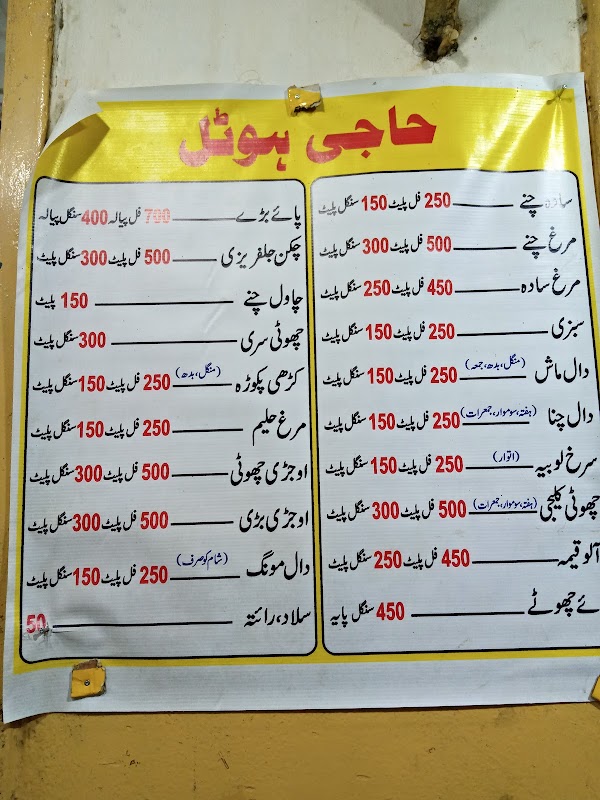 حاجی ہوٹل
سادہ چنے 250 فل پلیٹ 150 سنگل پلیٹ
مرغ چنے 500 فل پلیٹ 300 سنگل پلیٹ
مرغ سادہ 450 فل پلیٹ 250 سنگل پلیٹ
سبزی 250 فل پلیٹ 150 سنگل پلیٹ
دال ماش (منگل، بدھ، جمعہ) 250 فل پلیٹ 150 سنگل پلیٹ
دال چنا (ہفتہ، سوموار، جمعرات) 250 فل پلیٹ 150 سنگل پلیٹ
سرخ لوبیہ (اتوار) 250 فل پلیٹ 150 سنگل پلیٹ
چھوٹی کلیجی (ہفتہ، سوموار، جمعرات) 500 فل پلیٹ 300 سنگل پلیٹ
آلو قیمہ 450 فل پلیٹ 250 سنگل پلیٹ
ئے چھوٹے 450 سنگل پایہ
پائے بڑے 700 فل پیالہ 400 سنگل پیالہ
چکن جلفریزی 500 فل پلیٹ 300 سنگل پلیٹ
چاول چنے 150 پلیٹ
چھوٹی سری 300 سنگل پلیٹ
کڑھی پکوڑہ (منگل، بدھ) 250 فل پلیٹ 150 سنگل پلیٹ
مرغ حلیم 250 فل پلیٹ 150 سنگل پلیٹ
اوجڑی چھوٹی 500 فل پلیٹ 300 سنگل پلیٹ
اوجڑی بڑی 500 فل پلیٹ 300 سنگل پلیٹ
دال مونگ (شام کو صرف) 250 فل پلیٹ 150 سنگل پلیٹ
سلاد، رائتہ 50